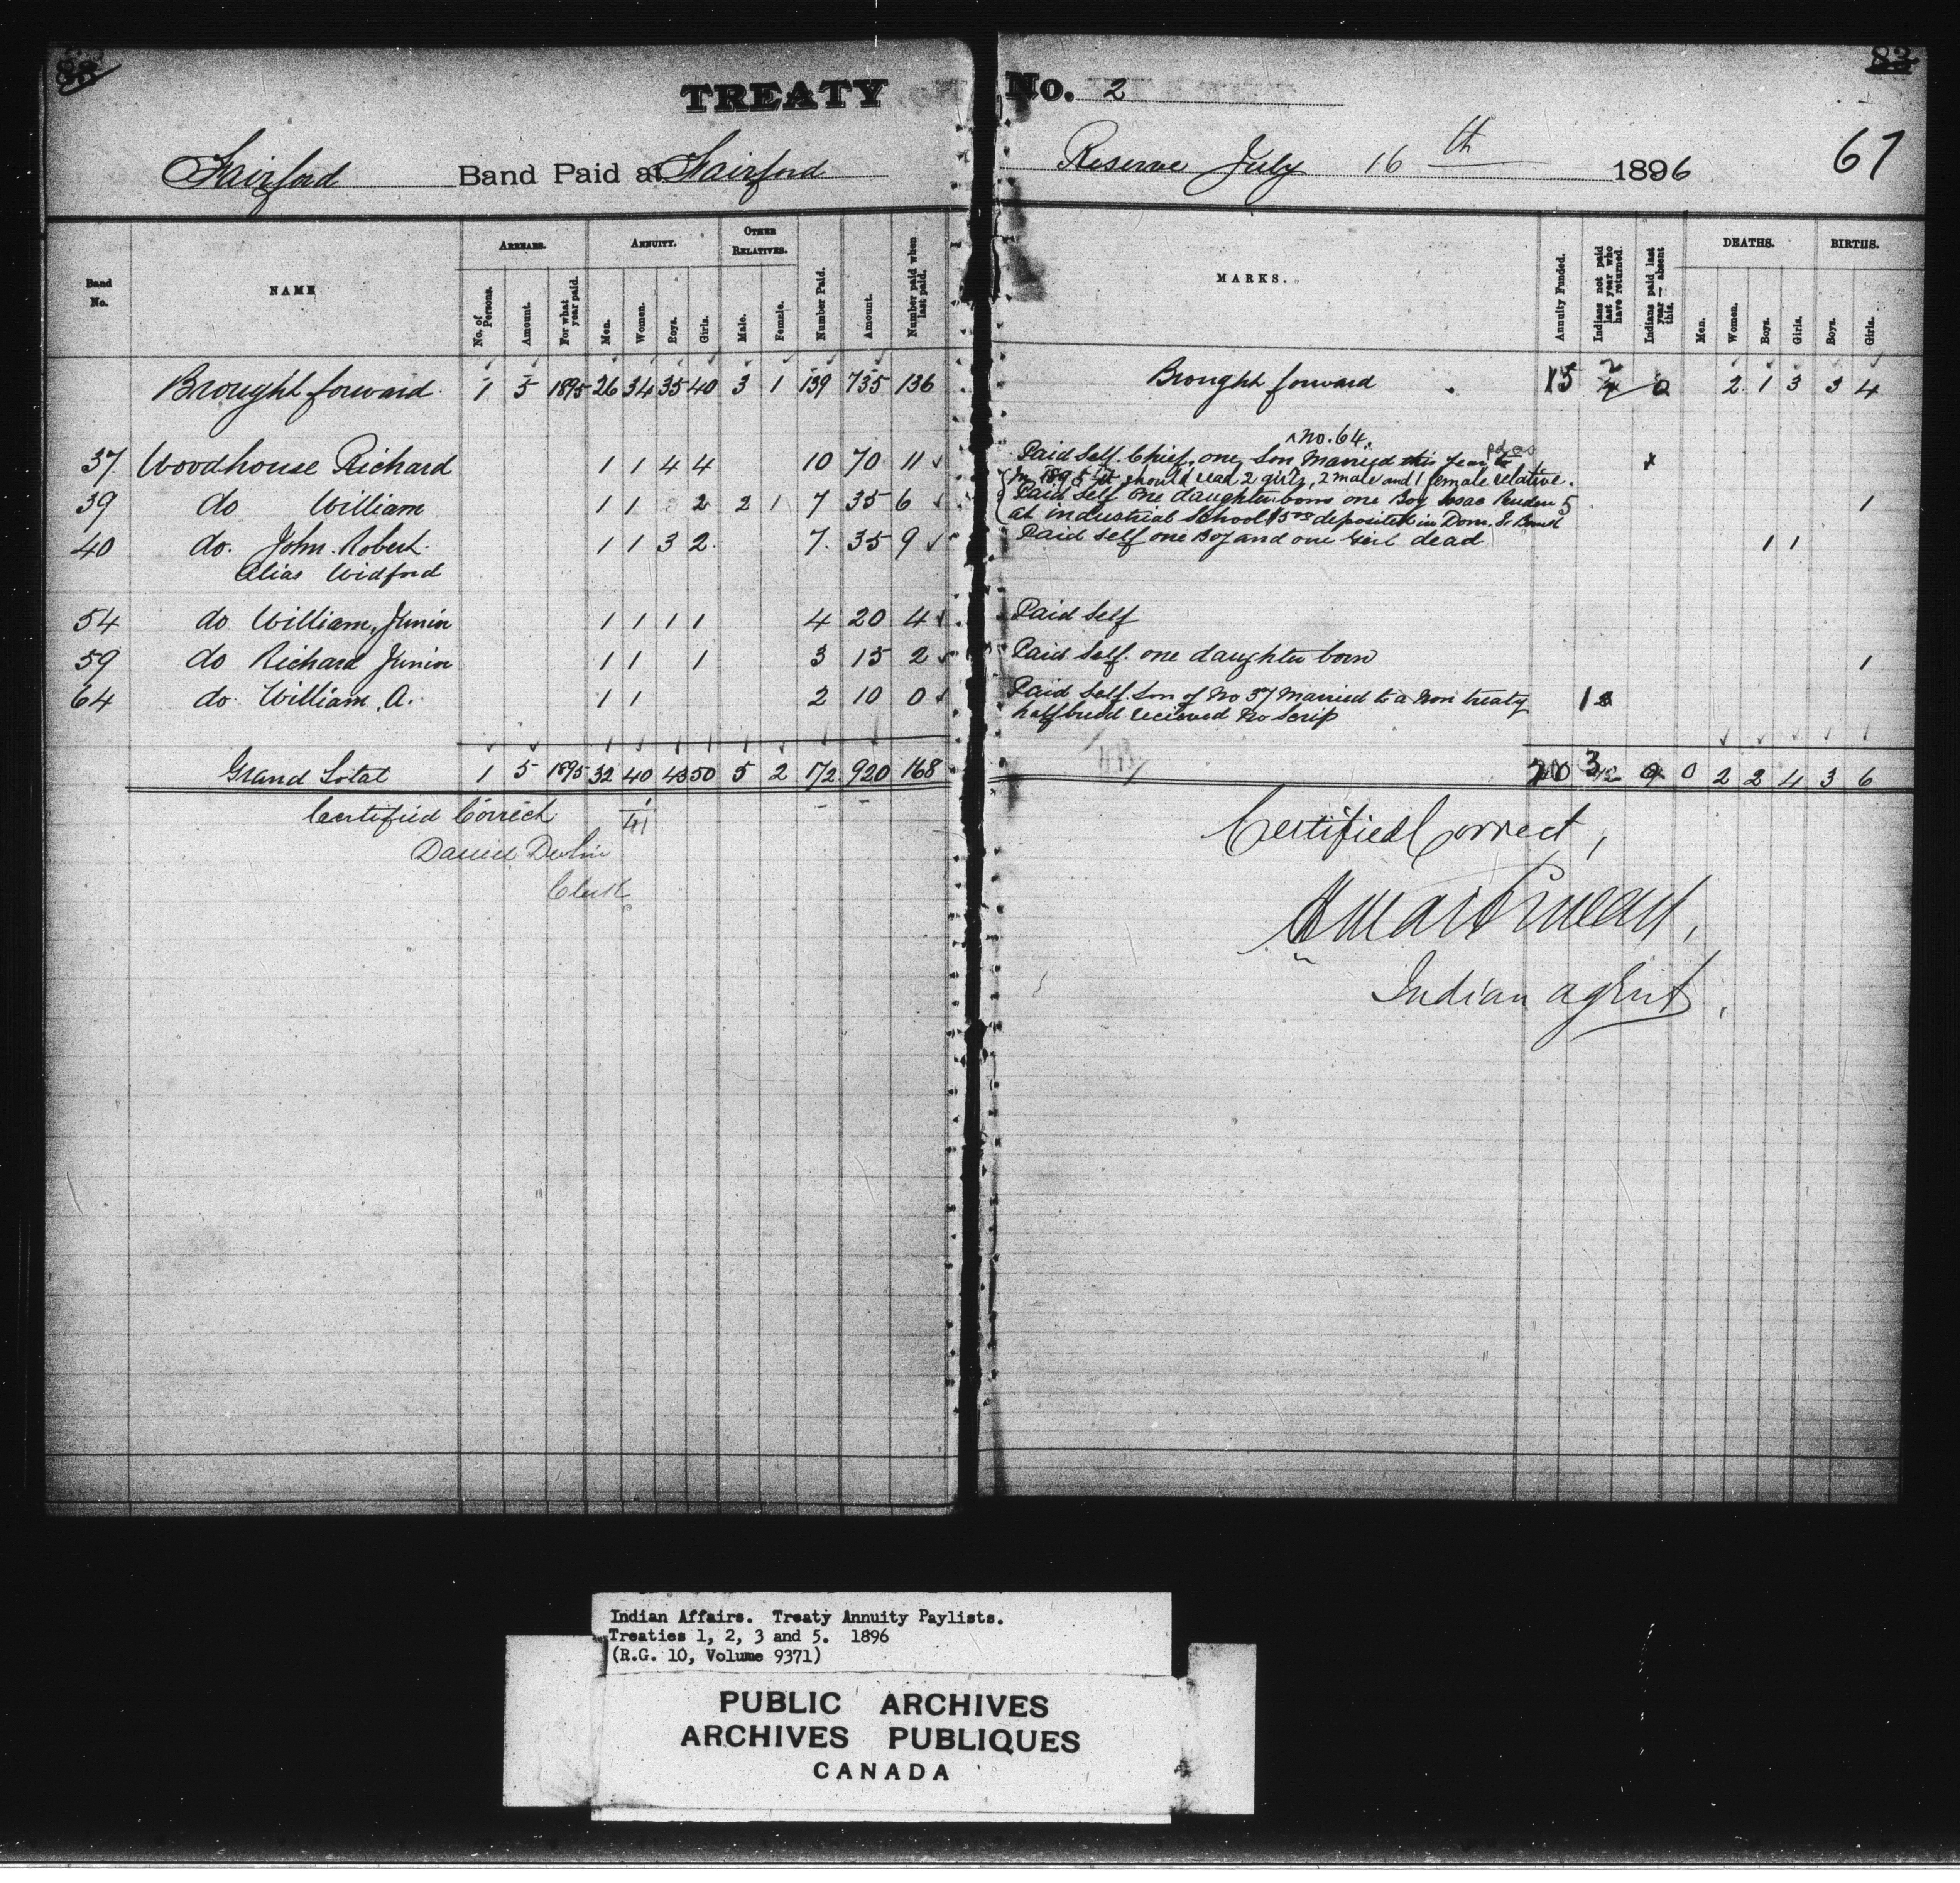 TREATY No. 2
67
Fairford Band Paid at Fairford Reserve July 16th 1896
Band No. NAME ARREARS. ANNUITY. OTHER RELATIVES. Number Paid. Amount. Number paid when last paid. MARKS. Annuity Funded. Indians not paid last year who have returned. Indians paid last year — absent this. DEATHS. BIRTHS.
No. of Persons. Amount. For what year paid. Men. Women. Boys. Girls. Male. Female. Men. Women. Boys. Girls. Boys. Girls.
Brought forward 1 5 1895 26 34 35 40 3 1 139 735 136 Brought forward 15 2 0 2 1 3 3 4
no. 64.
37. Woodhouse Richard 1 1 4 4 10 70 11 Paid Self. Chief. one Son Married this year
In 1895 it should read 2 girls, 2 male and 1 female relative.
39 do William 1 1 2 2 1 7 35 6 Paid Self One daughter born one Boy Isaac Pruden 5 1
at industrial School $5.00 deposited in Dom. S. Bank
40 do. John Robert 1 1 3 2 7. 35 9 Paid Self one Boy and one Girl dead 1 1
Alias Widford
54 do William, Junior 1 1 1 1 4 20 4 Paid Self
59 do Richard Junior 1 1 1 3 15 2 Paid Self. one daughter born 1
64 do William. A. 1 1 2 10 0 Paid Self. Son of No 37 Married to a Non treaty 1
halfbreed recieved No Scrip
Grand Total 1 5 1895 32 40 43 50 5 2 172 920 168 20 3 0 2 2 4 3 6
Certified Correct 1
41
Daniel Devlin
Clerk
Certified Correct,
Indian agent.
Indian Affairs. Treaty Annuity Paylists.
Treaties 1, 2, 3 and 5. 1896
(R.G. 10, Volume 9371)
PUBLIC ARCHIVES
ARCHIVES PUBLIQUES
CANADA